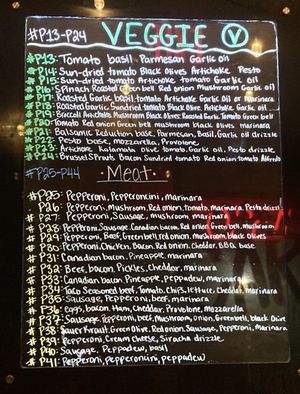 #P13-P24 VEGGIE V
#P13: Tomato basil Parmesan Garlic oil
#P14: Sun-dried tomato Black Olives Artichoke Pesto
#P15: Sun-dried tomato Artichoke Garlic oil
#P16: Spinach Roasted Green bell Red onion Mushroom Garlic oil
#P17: Roasted Garlic basil tomato Artichoke Garlic oil or marinara
#P18: Roasted Garlic Sundried tomato Black Olive, Artichoke, Garlic oil
#P19: Broccoli Artichoke Mushroom Black Olives Roasted Garlic Tomato Green bell
#P20: Tomato Red onion Green bell mushroom black olives marinara
#P21: Balsamic Reduction base, Parmesan, Basil, Garlic oil drizzle
#P22: Pesto base, mozzarella, Provolone,
#P23: Artichoke, Kalamata Olive, tomato Garlic oil, Pesto drizzle
#P24: Brussel Sprouts Bacon Sundried Tomato Red onion tomato Alfredo
#P25-P44 ·Meat·
#P25: Pepperoni, Pepperoncini, marinara
#P26: Pepperoni, Mushroom, Red onion, tomato, marinara, Pesto drizzle
#P27: Pepperoni, Sausage, mushroom, marinara
#P28: Pepperoni Sausage, Canadian bacon, Red onion, Green bell, Mushroom
#P29: Pepperoni, Beef, Green bell, Red onion, mushroom, black olives
#P30: Pepperoni, Chicken, Bacon, Red onion, Cheddar, BBQ base
#P31: Canadian bacon, Pineapple, marinara
#P32: Beef, bacon, Pickles, Cheddar, marinara
#P33: Canadian bacon, Pineapple, peppadew, marinara
#P34: Taco Seasoned beef, Tomato, Chips, lettuce, Cheddar, marinara
#P35: Sausage, Pepperoni, beef, marinara
#P36: Eggs, bacon, Ham, Cheddar, Provolone, Mozzarella
#P37: Sausage, Pepperoni, beef, Mushroom, onion, Greenbell, black Olive
#P38: Sauerkraut, Green Olive, Red onion, Sausage, Pepperoni, Marinara
#P39: Pepperoni, Cream Cheese, Siracha drizzle
#P40: Sausage, Peppadew, basil
#P41: Pepperoni, pepperoncini, peppadew